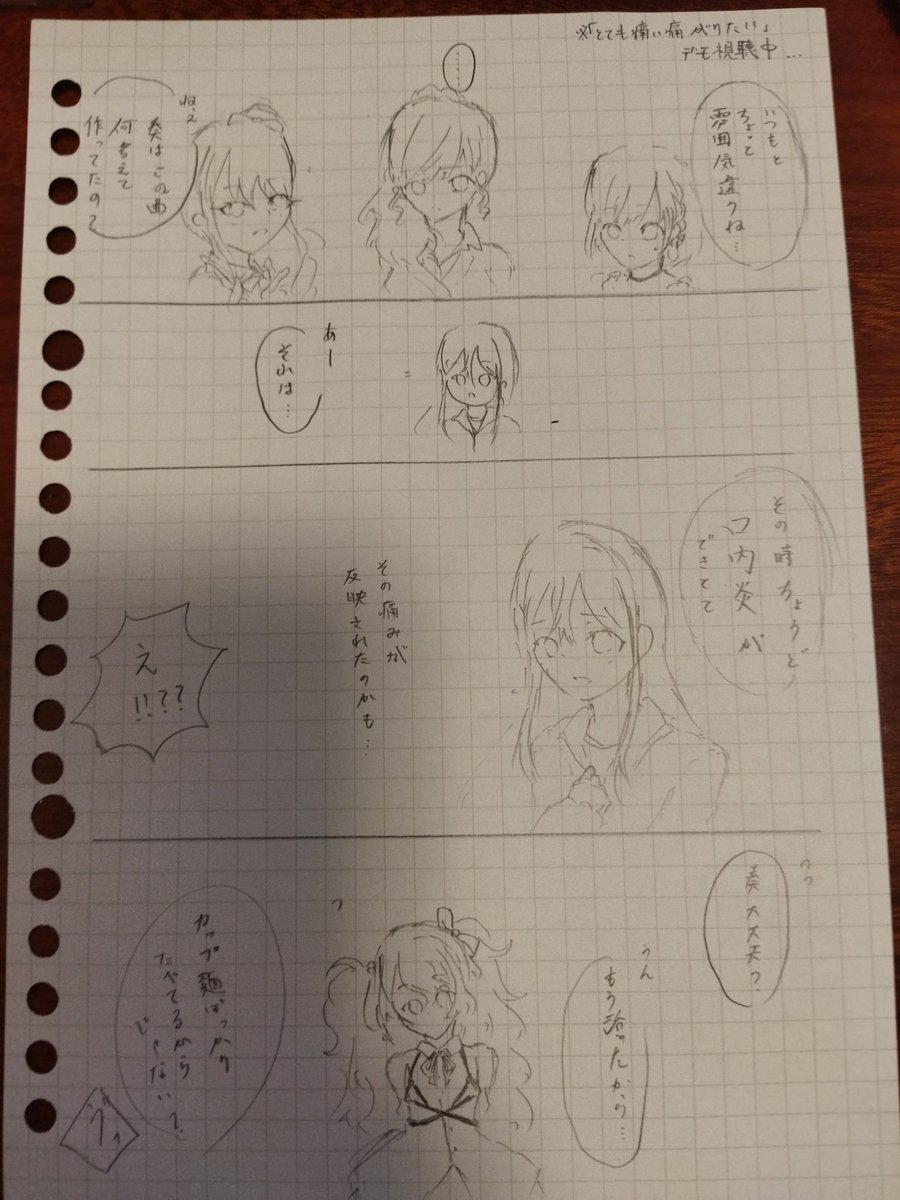 ※「とても痛い痛がりたい」
デモ視聴中…
いつもと
ちょっと
雰囲気違うね…
……
ねぇ
奏はこの曲
何考えて
作ってたの?
あー
それは…
その時ちょうど
口内炎が
できてて
その痛みが
反映されたのかも…
え
!!??
奏大丈夫?
うん
もう治ったから…
カップ麺ばっかり
たべてるから
じゃない?
ゔっ